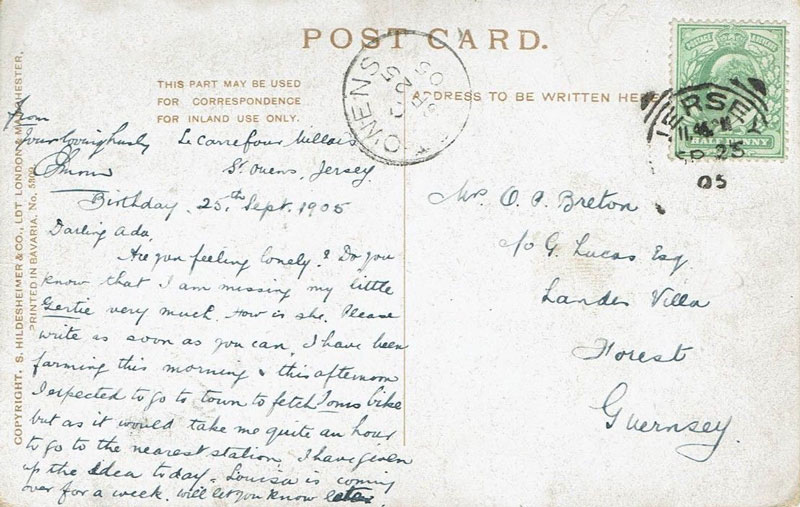 POST CARD.
THIS PART MAY BE USED
FOR CORRESPONDENCE
FOR INLAND USE ONLY.
ADDRESS TO BE WRITTEN HERE
COPYRIGHT, S. HILDESHEIMER & CO., LDT LONDON & MANCHESTER,
PRINTED IN BAVARIA, No.
ST OWENS
SP 25
05
JERSEY
SP 25
05
POSTAGE
HALFPENNY
from
Your loving hubby
Le Carrefour Villais
St Ouens, Jersey
Birthday. 25th Sept. 1905
Darling Ada,
Are you feeling lonely? Do you
know that I am missing my little
Gertie very much. How is she. Please
write as soon as you can. I have been
farming this morning & this afternoon
I expected to go to town to fetch Toms bike
but as it would take me quite an hour
to go to the nearest station I have given
up the idea today. Louisa is coming
over for a week. Will let you know later.
O. P. Breton
c/o G. Lucas Esq
Landes Villa
Forest
Guernsey.